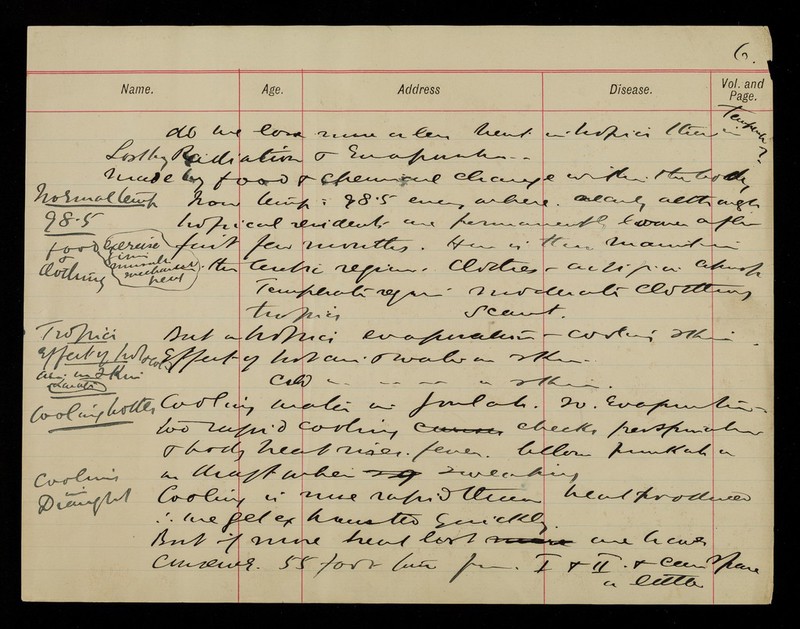 6.
Name. Age. Address Disease. Vol. and Page.
do we lose more or less heat in tropics than in Temperate?
Lost by Radiation & Evaporation
made by food & chemical change within the body
Normal temp
98.5
How temp: 98.5 everywhere. nearly although
tropical residents are permanently warmer after
first few months. How is this maintain
food & Clothing
exercise
muscle
mechanical heat
the Arctic regions. Clothes
Temperate region moderate clothing
tropics scant.
Tropics
Effect of hot & cold
air on skin
But in tropics evaporation - cooling skin
Effect of hot air & water on skin.
cold " " " " skin.
Cooling bottles
Cooling water in Evaporation
too rapid cooling checks perspiration
& body heat rises. fever. below punkah or
Cooling in Draught
in draft when sweating
Cooling is more rapid than heat produced
∴ we get exhausted quickly.
But if more heat lost
55 food I & II. & can spare
a little